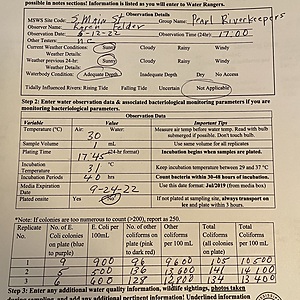 possible in notes sections! Information is listed as you will enter to Water Rangers.
Observation Details
MSWS Site Code: S Main St Group Name: Pearl Riverkeepers
Observer Name: Karen Felder
Observation Date: 6-12-22 Observation Time (24hr): 17:00
Other Testers: n.c
Current Weather Conditions: Sunny Cloudy Rainy Windy
Weather Details:
Weather previous 24-hr: Sunny Cloudy Rainy Windy
Weather Details:
Waterbody Condition: Adequate Depth Inadequate Depth Dry No Access
Tidally Influenced Rivers: Rising Tide Falling Tide Uncertain Not Applicable
Step 2: Enter water observation data & associated bacteriological monitoring parameters if you are
monitoring bacteriological parameters.
Observation Data
Variable Value Important Tips
Temperature (°C) Air: Water: Measure air temp before water temp. Read with bulb
30 submerged if possible. Don't touch bulb.
Sample Volume 1 mL Use same volume for all replicates
Plating Time 17:45 (24-hr format) Incubation begins when samples are plated.
Incubation Temperature 31 °C Keep incubation temperature between 29 and 37 °C
Incubation Periods 40 hrs Count bacteria within 30-48 hours of incubation.
Media Expiration Date 9-24-22 Use this date format: Jul/2019 (from media box)
Plated onsite Yes No If not plated at sampling site, always transport on
ice and plate within 3 hours.
*Note: If colonies are too numerous to count (>200), report as 250.
Replicate No. No. of E. Coli colonies on plate (blue to purple) E. Coli per 100mL No. of other coliforms on plate (pink to dark red) Other coliforms per 100 mL Total Coliforms (all colonies on plate) Total Coliforms per 100 mL
1 9 900 96 9600 105 10,500
2 5 500 136 13,600 141 14,100
3 6 600 128 12,800 134 13,400
Step 3: Enter any additional water quality information, wildlife sightings, photos taken
during sampling, and add any additional pertinent information! Underlined information